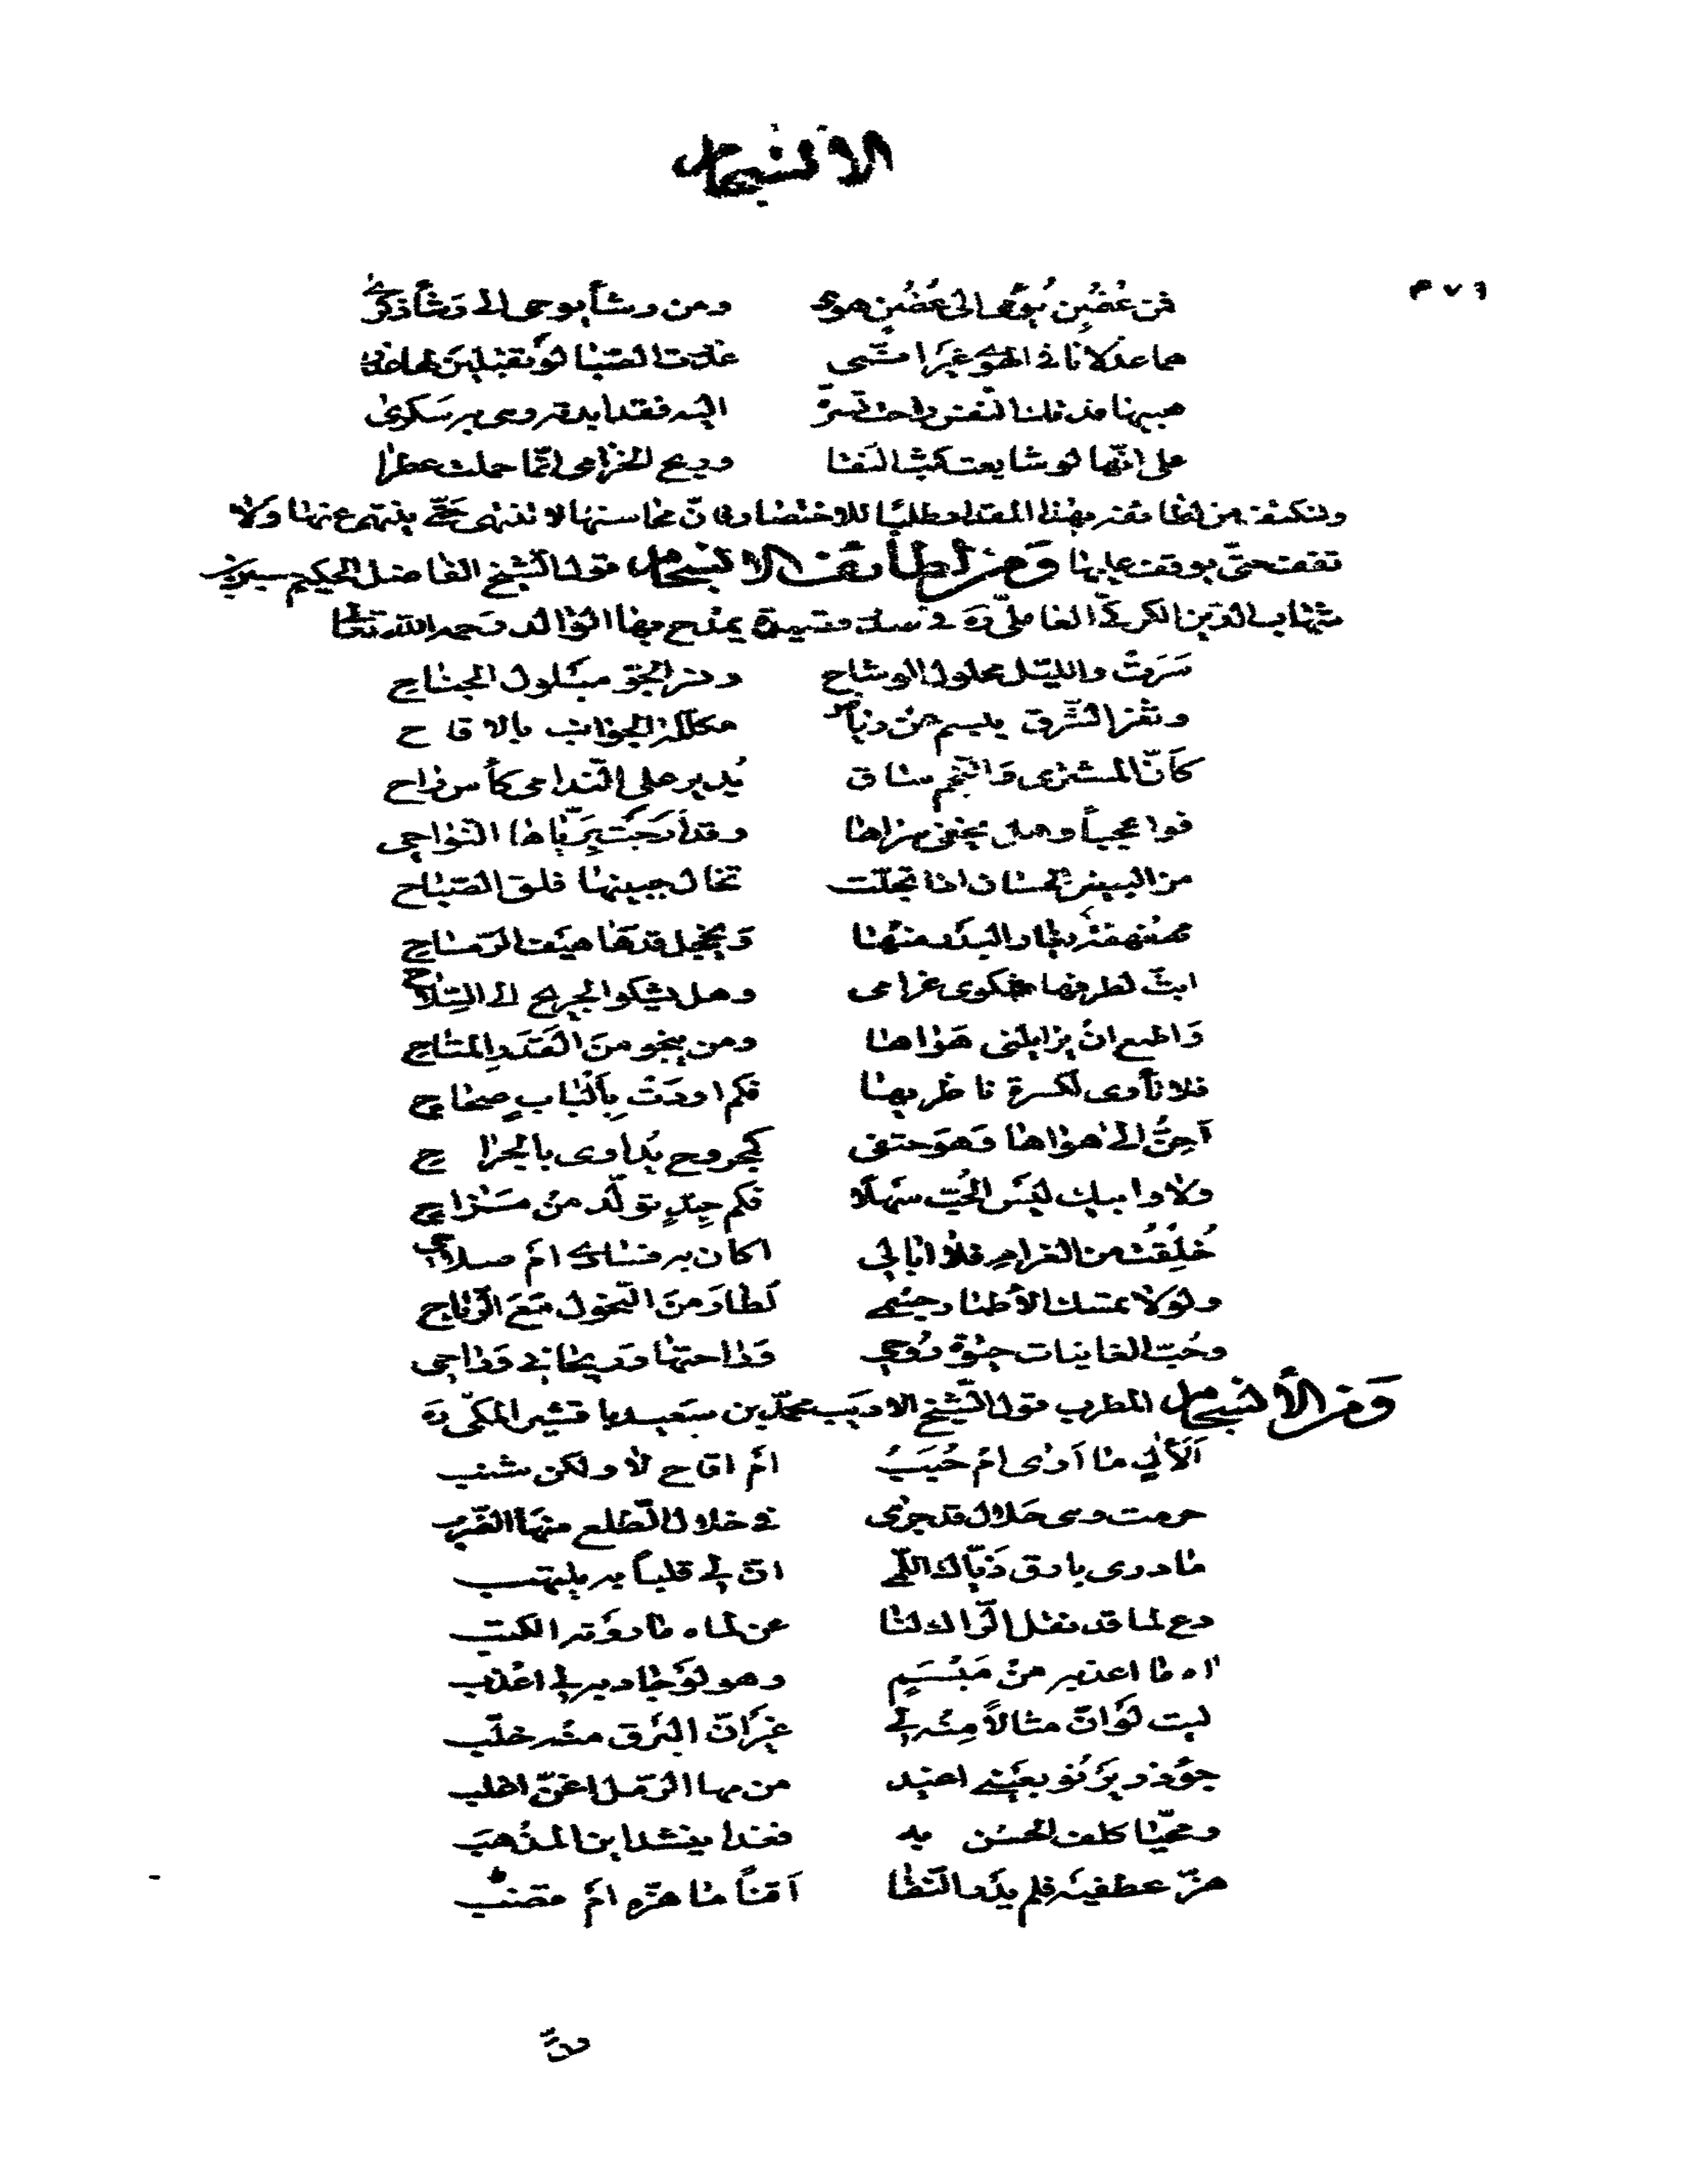 الانسجام
٣٧٦
فمن غُصُنٍ يُومى الى غُصُنٍ هوى ومن رشأ يوحى الى رَشأ ذكرى
هما عذلانا فى الهوى غير انّنى عذرت الصّبا لو تقبلين لها عذرا
هبيها فدتك النفس راحت تسرّه اليه فقد ابدته وهى به سكرى
على انّها لو شايعت كثب النقا وريح الخزامى انّما حملت عطرا
ولنكتف من لطائفه بهذا المقدار طلبًا للاختصار فانّ محاسنها لا تنتهى حتّى ينتهى عنها ولا
تقف حتّى يوقف عليها ومن لطائف الانسجام قول الشيخ الفاضل الحكيم حسين بن
شهاب الدّين الكركىّ العاملىّ ره فى قصيدة يمدح بها الوالد رحمه الله تعالى
سَرَتْ والليل محلول الوشاح ونسر الجوّ مبلول الجناح
وثغر الشّرق يبسم عن رياض مكلّلة الجوانب بالاقاح
كأنّ المشترى والنّجم ساق يُدير على النّدامى كأس راح
فواعجباً وهل يخفى سراها وقد أرجت بِريّاها النّواحى
من البيض الحسان اذا تجلّت تخال جبينها فلق الصّباح
مهفهفة يغار البدر منها ويخجل قدّها هيف الرّماح
ابثّ لطرفها شكوى غرامى وهل يشكو الجريح الى السّلاح
وأطمع انْ يزايلنى هواها ومن ينجو منَ القَدَر المتاح
فلا تأوى لكسرة ناظريها فكم اودَتْ بألباب صحاح
أحِنُّ الى هواها وهوَ حتفى كمجروح يُداوى بالجراح
ولا وابيك ليسَ الحُبّ سهلا فكم جِدٍّ تولّد منْ مزاح
خُلِقْت من الغرام فلا ابالى اكان به فسادى امْ صلاحى
ولولا تمسك الأطمار جسمى لطارَ منَ النّحول مَعَ الرّياح
وحُبّ الغانيات حيوة رُوحى وراحتها وريحانى وراحى
ومن الأنسجام المطرب قول الشّيخ الاديب محمّد بن سعيد باقشير المكّى ره
ألألى ما أرى امْ حُبَبُ امْ اقاح لا ولكن شنب
حرمت وهى حلال قد جرى فى خلال الطّلع منها الضّرب
ما درى بارق ذيّاك اللّمى انّ لى قلباً به يلتهب
دع لما قد نقل الرّاوى لنا عن لماه ما روته الكتب
اه ما اعذبه منْ مَبْسَمٍ وهو لوْ جاد به لى اعذب
ليت لوْ انّ مثالاً مِنْه لى غير انّ البرق منْه خلّب
جؤذر يرنو بعينى اغيد من مها الرّمل اغنّ اغلب
ومحيّا كلف الحسن به فغدا ينشد ابن المذهب
هزّ عطفيه فلم يدر النّقا أقناً ما هزّه امْ قضب